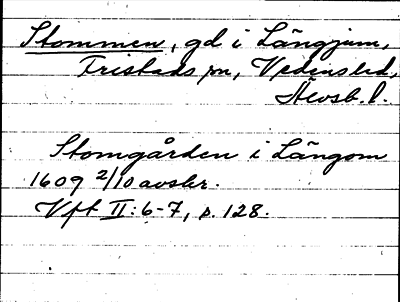 Stommen, gd i Längjum,
Fristads sn, Vedens hd,
Älvsb. l.
Stomgården i Längom
1609 2/10 avskr.
Vft II:6-7, s. 128.